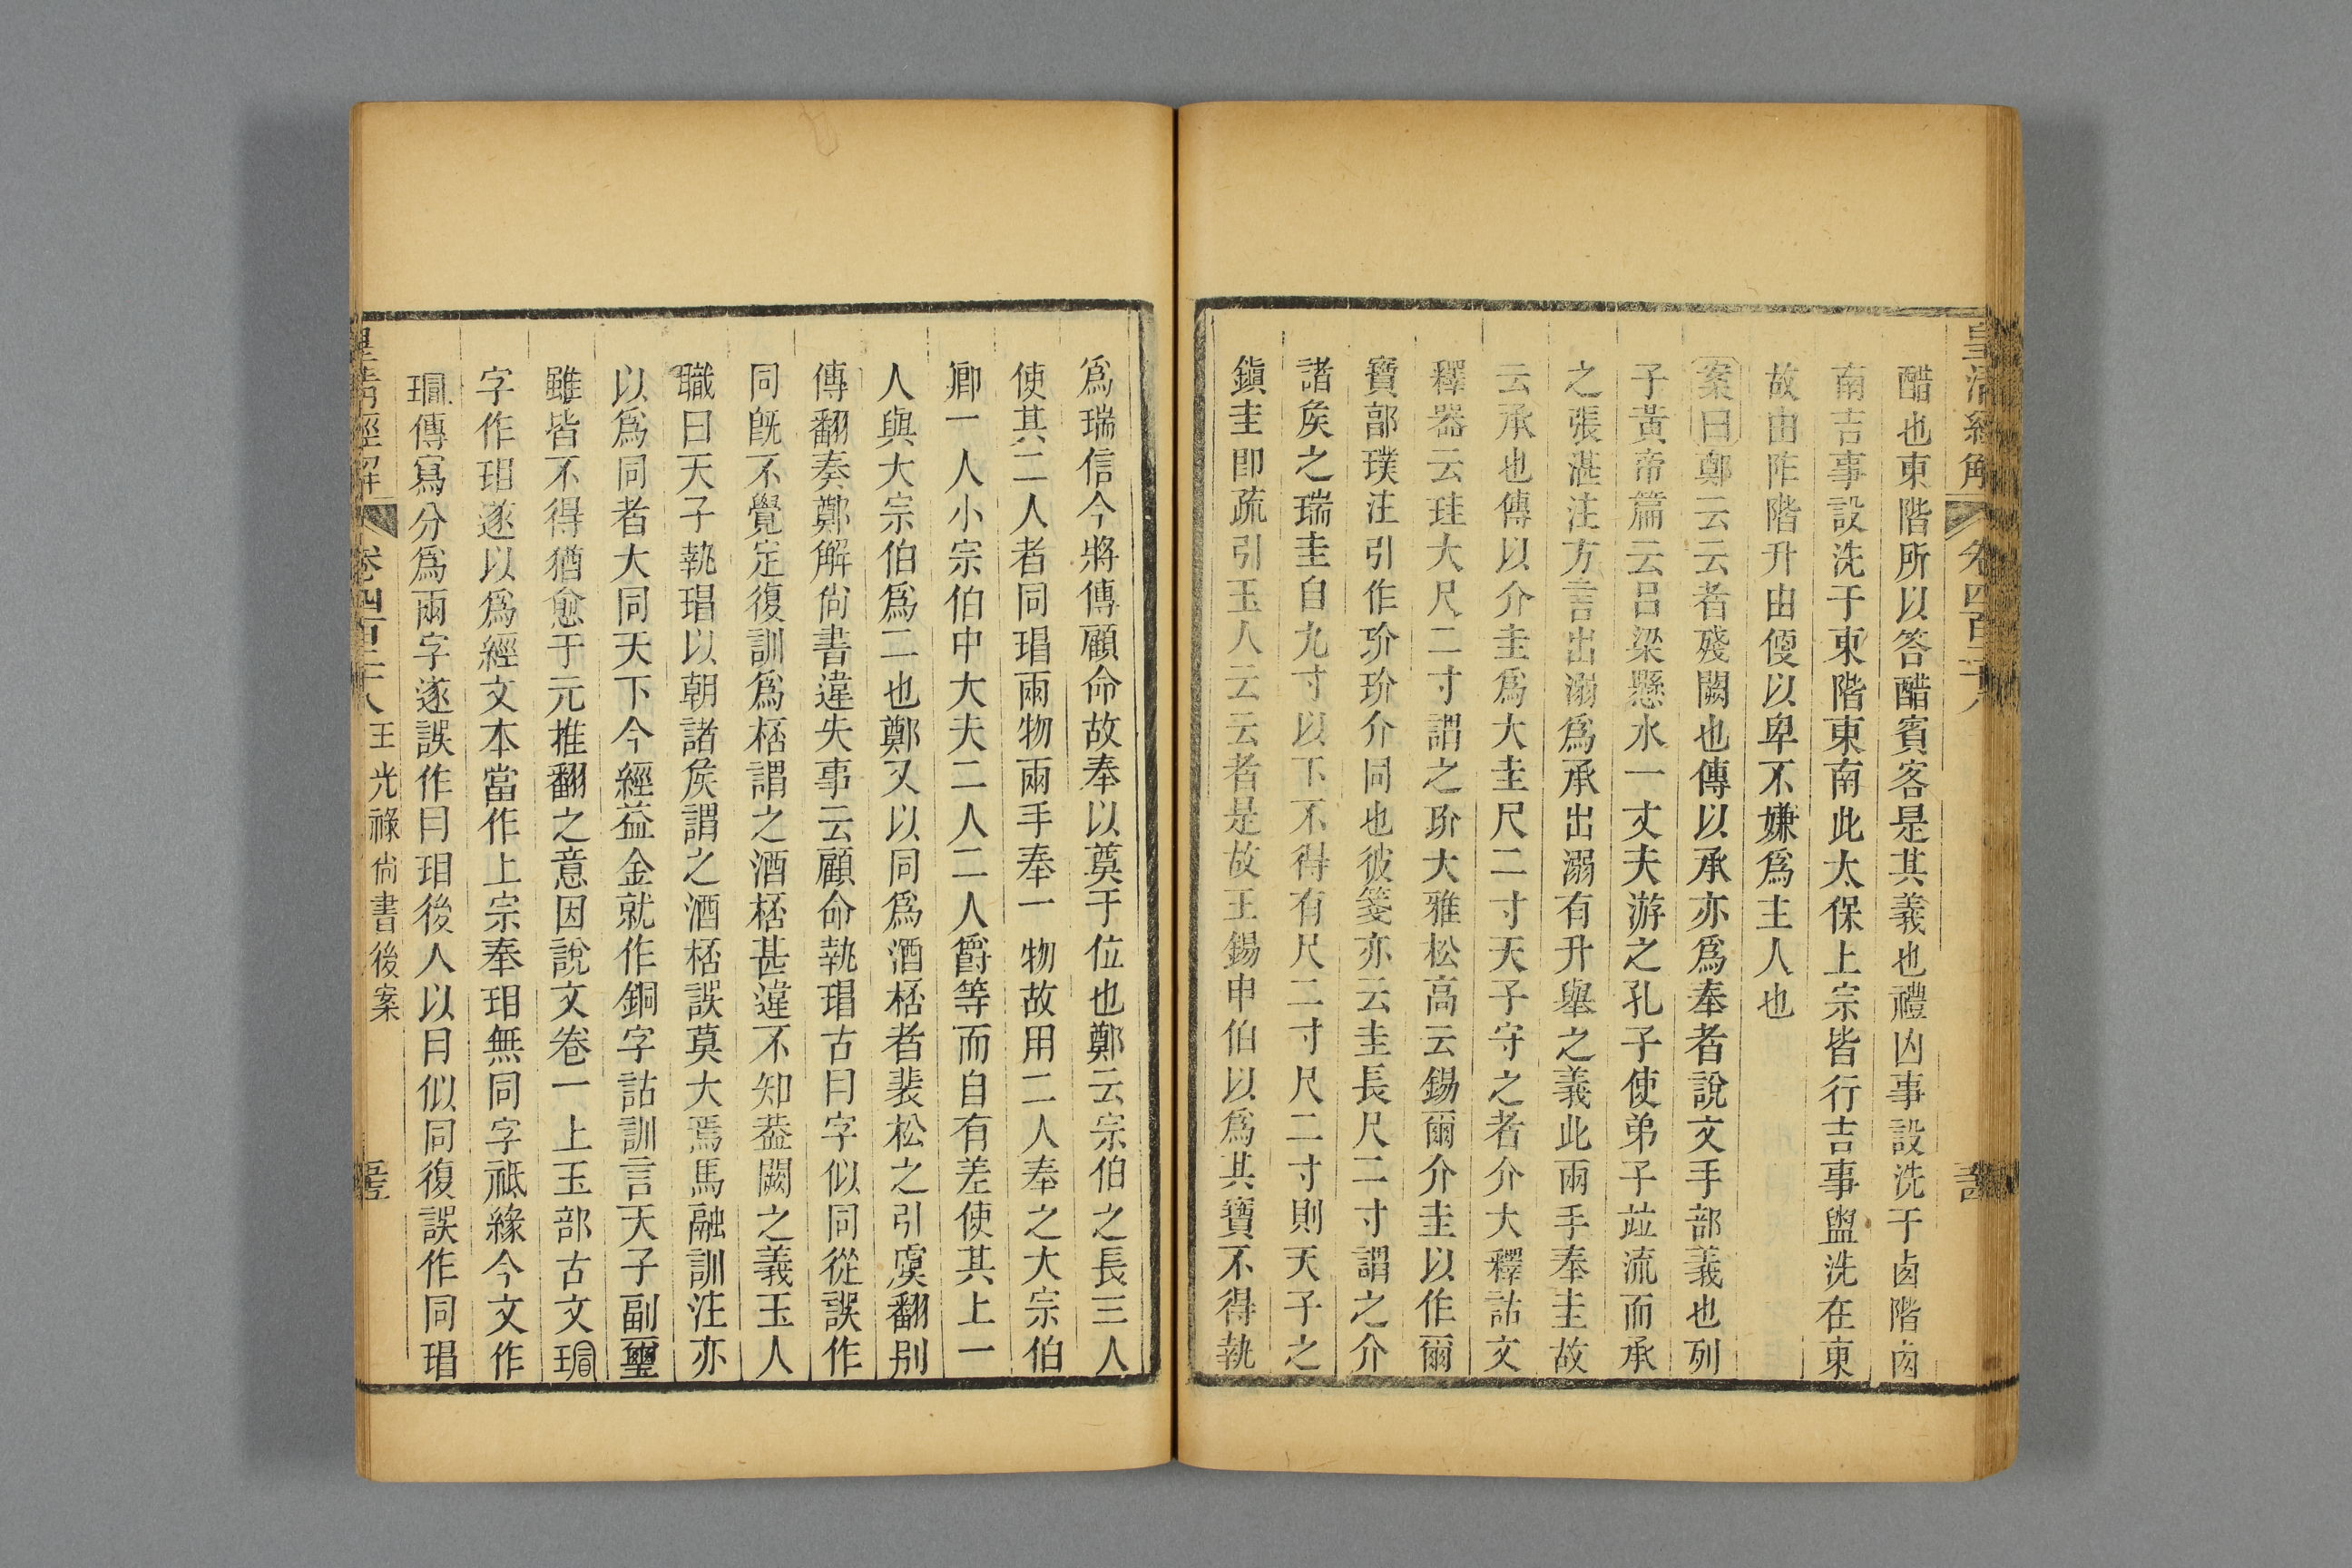 皇清經解
卷四百二十八
醋也東階所以答醋賓客是其義也禮凶事設洗于㢴階㢴
南吉事設洗于東階東南此太保上宗皆行吉事盥洗在東
故由阼階升由便以卑不嫌爲主人也
案曰鄭云云者殘闕也傳以承亦爲奉者說文手部義也列
子黃帝篇云呂梁懸水一丈夫游之孔子使弟子竝流而承
之張湛注方言出溺爲承出溺有升舉之義此兩手奉圭故
云承也傳以介圭爲大圭尺二寸天子守之者介大釋詁文
釋器云珪大尺二寸謂之玠大雅松高云錫爾介圭以作爾
寶郭璞注引作玠玠介同也彼箋亦云圭長尺二寸謂之介
諸矦之瑞圭自九寸以下不得有尺二寸尺二寸則天子之
鎭圭卽疏引玉人云云者是故王錫申伯以爲其寶不得執
爲瑞信今將傳顧命故奉以奠于位也鄭云宗伯之長三人
使其二人者同瑁兩物兩手奉一物故用二人奉之大宗伯
卿一人小宗伯中大夫二人二人爵等而自有差使其上一
人與大宗伯爲二也鄭又以同爲酒桮者裴松之引虞翻別
傳翻奏鄭解尙書違失事云顧命執瑁古曰字似同從誤作
同旣不覺定復訓爲桮謂之酒桮甚違不知葢闕之義玉人
職曰天子執瑁以朝諸矦謂之酒桮誤莫大焉馬融訓注亦
以爲同者大同天下今經益金就作銅字詁訓言天子副璽
雖皆不得猶愈于元推翻之意因說文卷一上玉部古文㻭
字作珇遂以爲經文本當作上宗奉珇無同字祗緣今文作
㻭傳寫分爲兩字遂誤作曰珇後人以曰似同復誤作同瑁
皇清經解
卷四百二十八
王光祿尙書後案